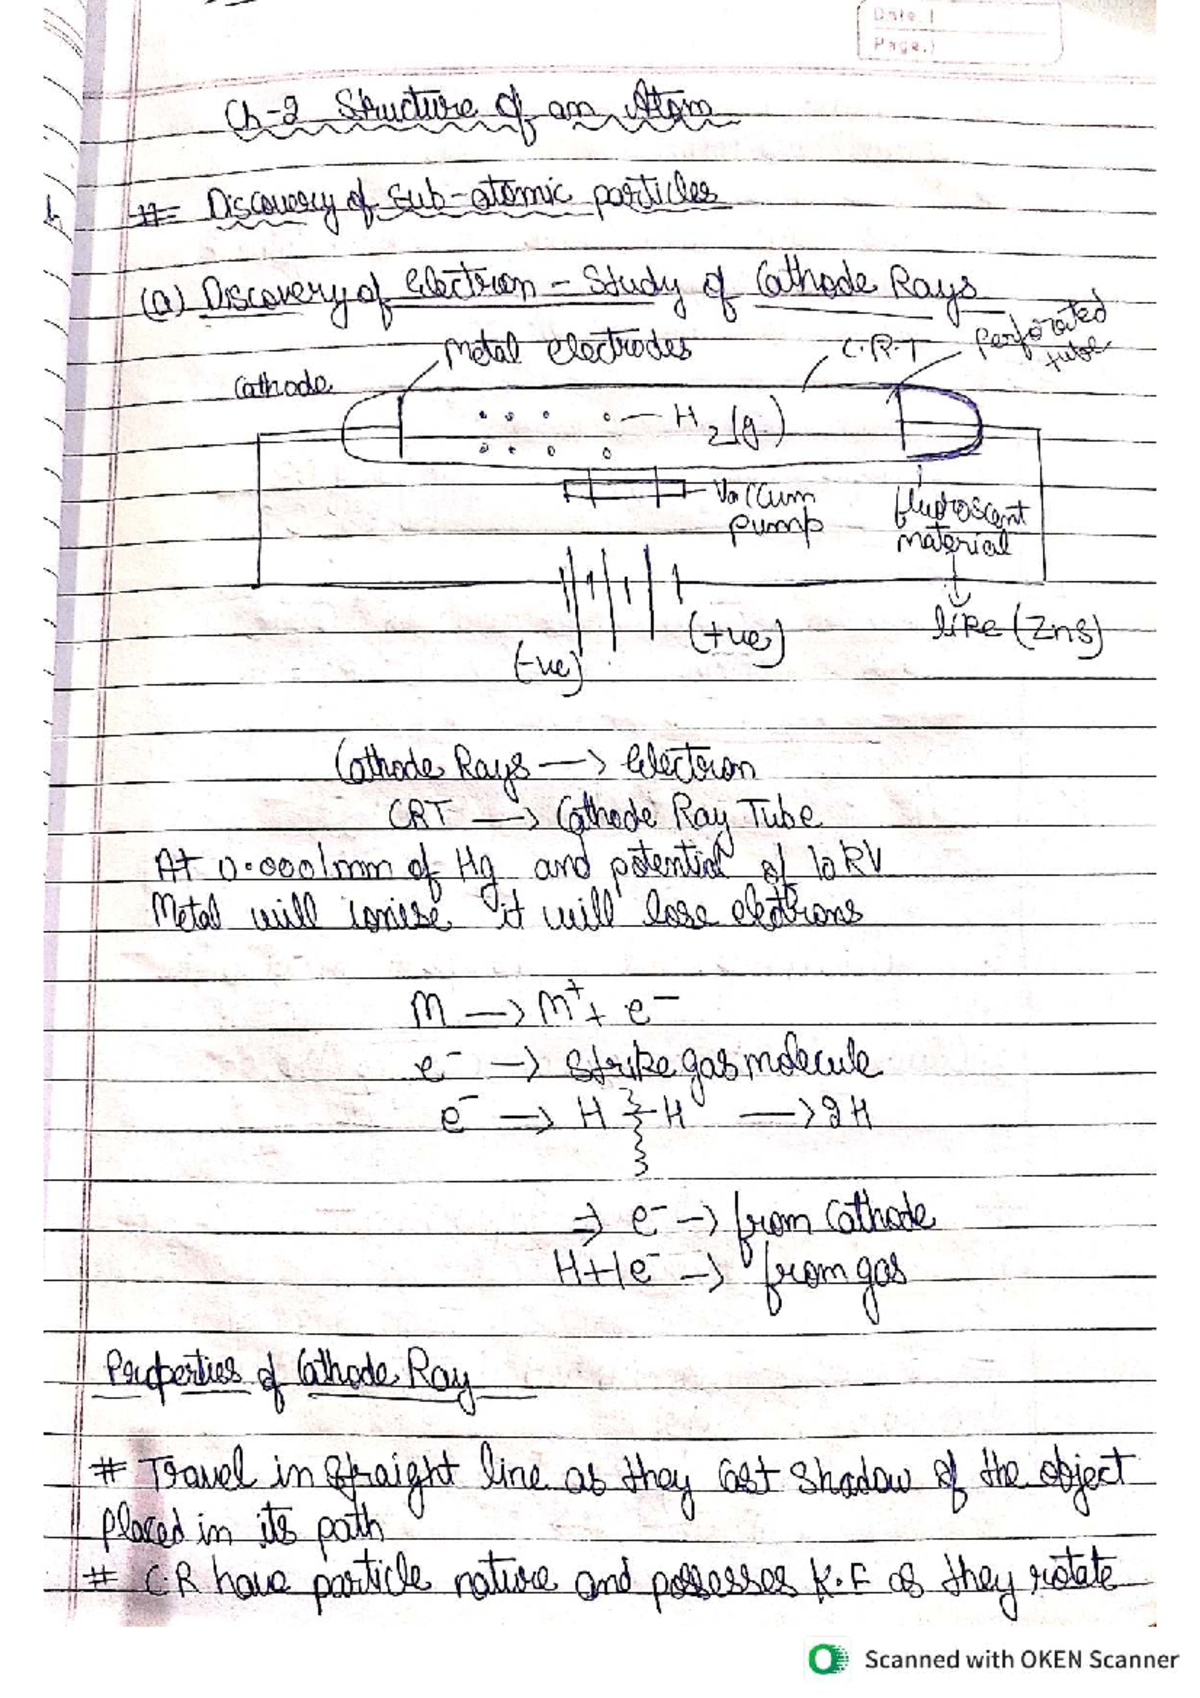 Date.|
Page.)
Ch-2 Structure of an Atom
#= Discovery of Sub-atomic particles
(a) Discovery of electron - Study of Cathode Rays
Metal electrodes
C.R.T
Perforated
tube
Cathode
H2(g.)
Vaccum
pump
fluoroscent
material
like (Zns)
(+ve)
(-ve)
Cathode Rays -> electron
CRT -> Cathode Ray Tube
At 0.0001mm of Hg and potential of 10KV
Metal will ionise it will lose electrons
M -> M+ + e-
e- -> strike gas molecule
e- -> H-H -> 2H
=> e- -> from Cathode
H+1e- -> from gas
Properties of Cathode Ray
# Travel in straight line as they cast shadow of the object
placed in its path
# C.R have particle nature and possesses K.E as they rotate
Scanned with OKEN Scanner